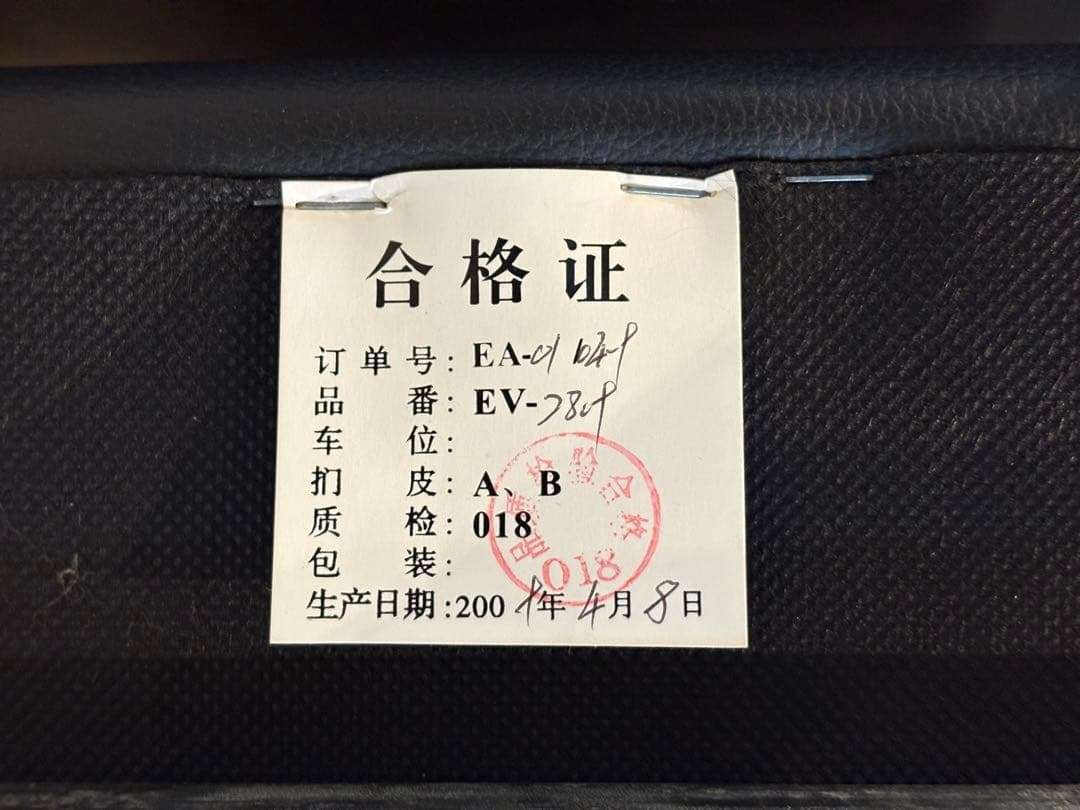 合格证
订单号: EA-01
品番: EV-289
车位:
扪皮: A、B
质检: 018
包装:
生产日期:2009年4月8日
品质检验合格
018